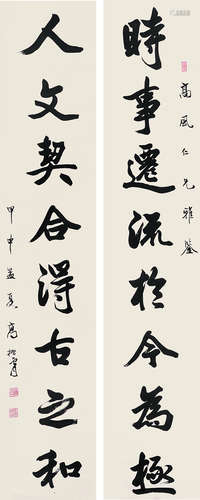 時事遷流於今為極
高風仁兄雅鑒
人文契合得古之和
甲申孟夏高振霄